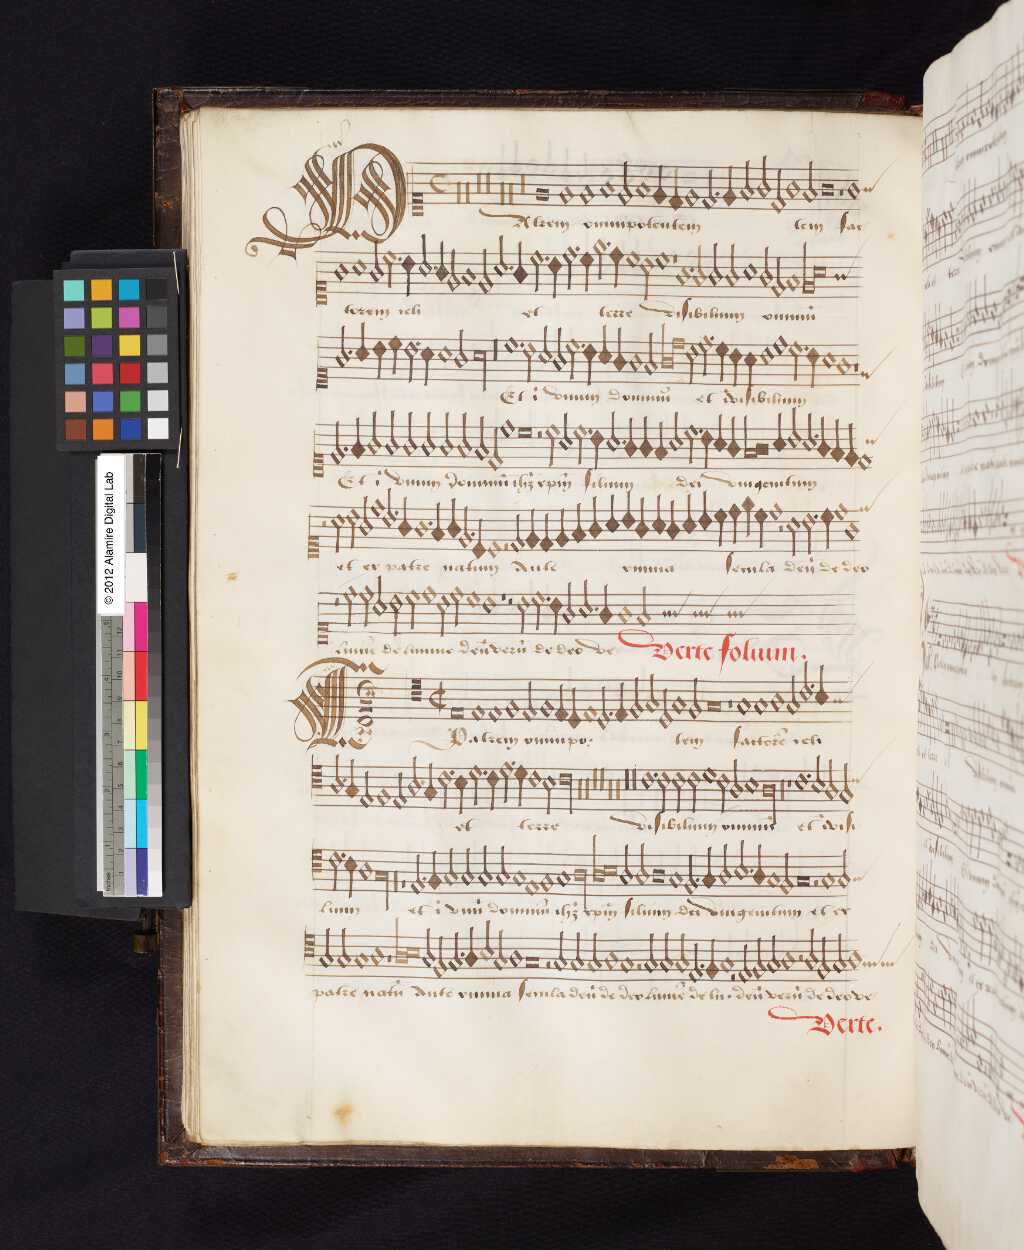 © 2012 Alamire Digital Lab
PAtrem omnipotentem tem fac
torem celi et terre visibilium omniū
Et ī vnum dominū et ivisibilium
Et ī vnum dominū ihꝫ xpm̄ filium dei vnigenitum
et ex patre natum Ante omnia secula deū de deo
lumē de lumine deū verū de deo ve
Verte folium.
Patrem omnipo. tem factorē celi
et terre visibilium omniū et ivisi
lium et ī vnū dominū ihꝫ xpm̄ filium dei vnigenitum et ex
patre natū Ante omnia secula deū de deo lumē de lu. deū verū de deo ve
Verte.